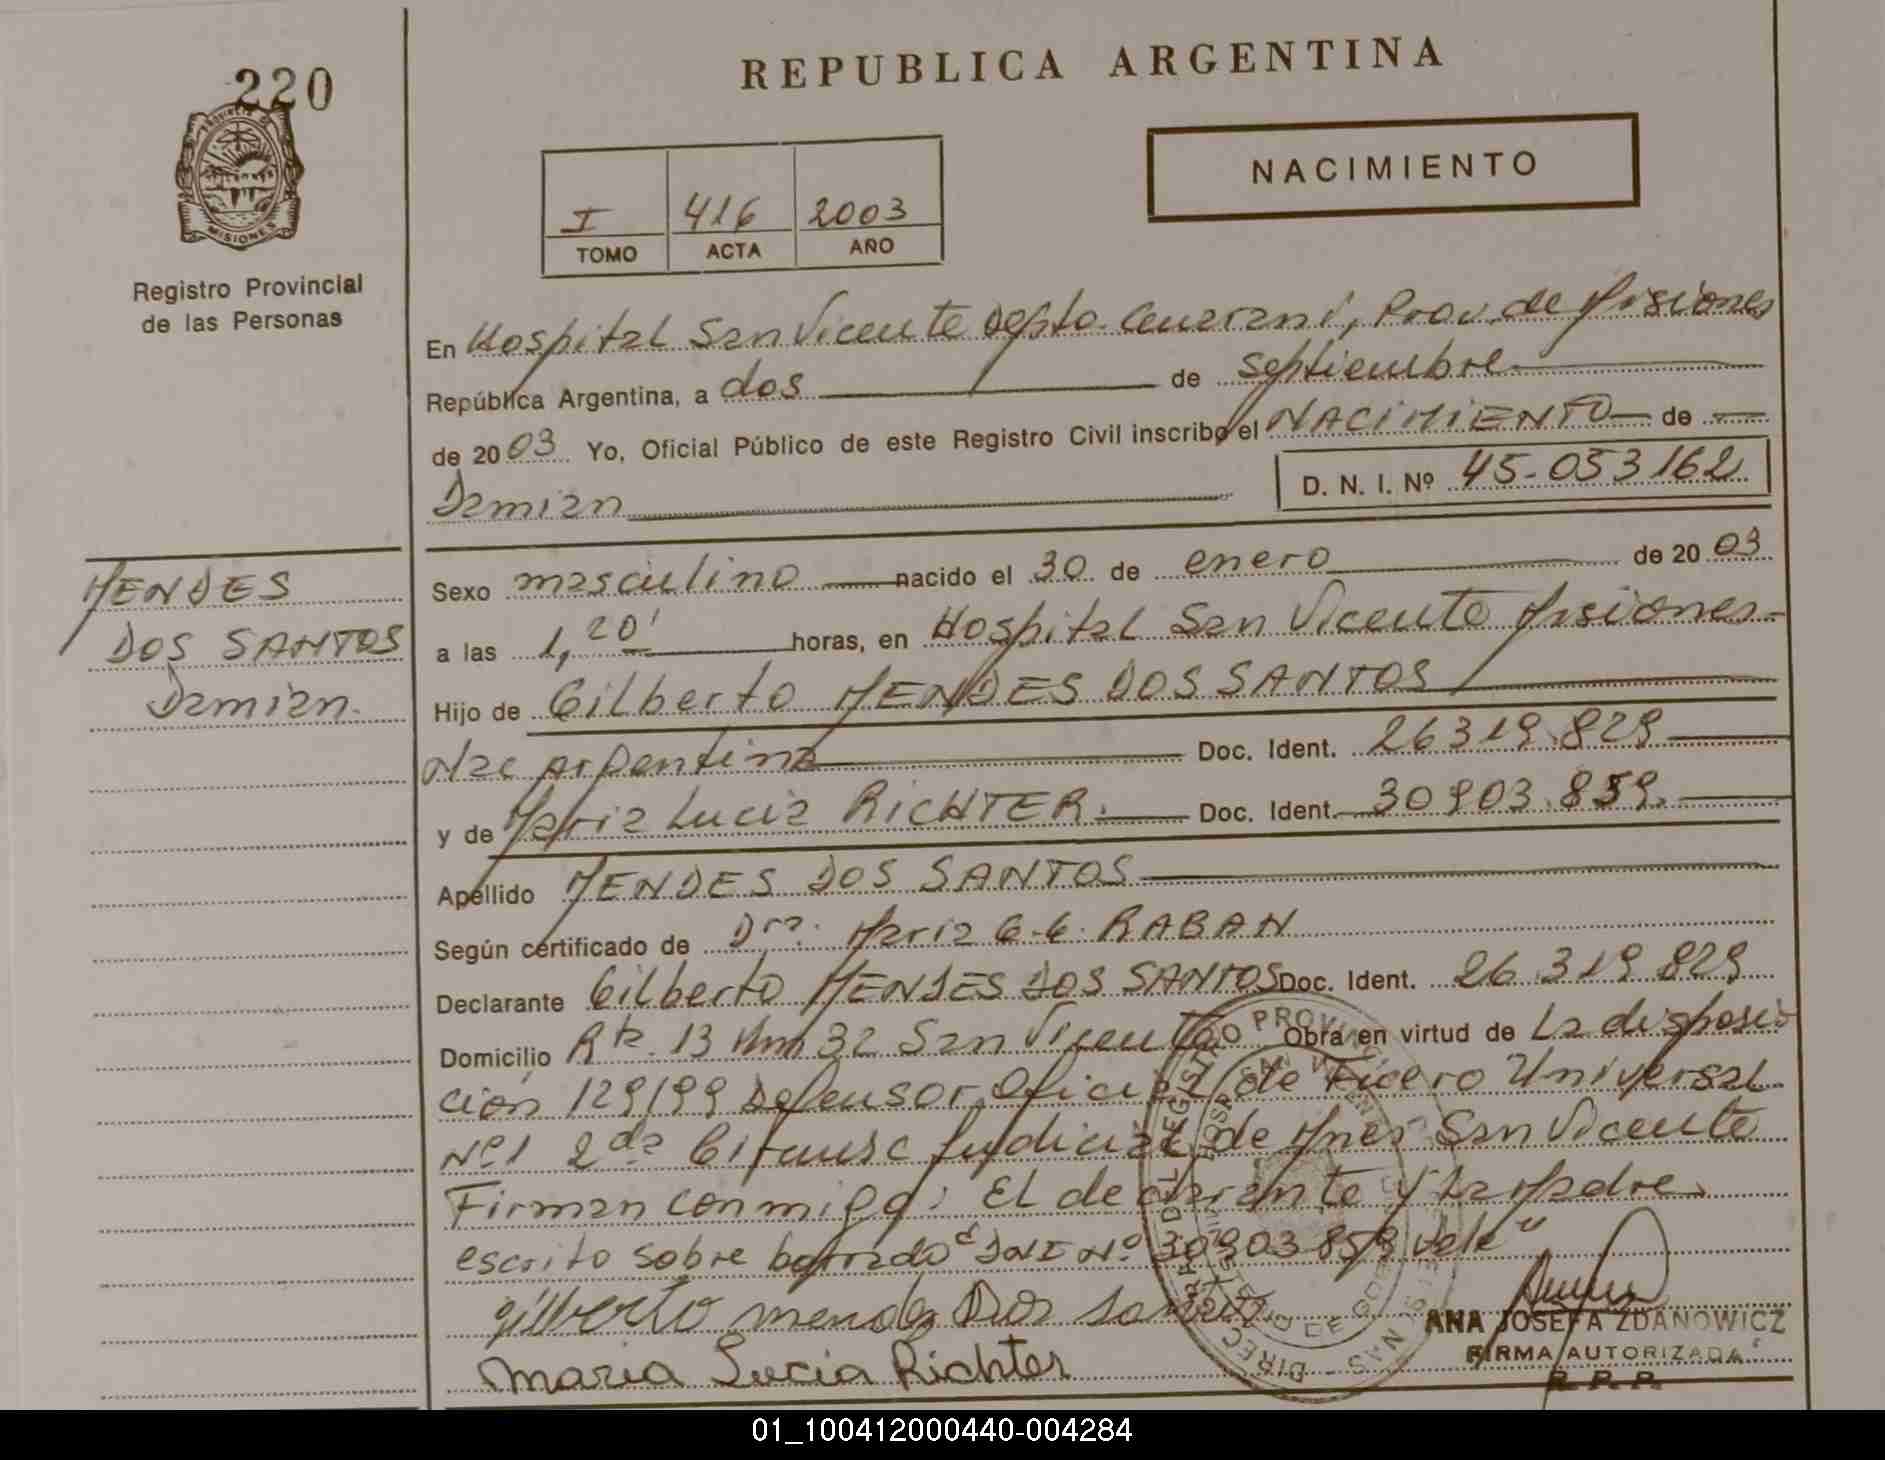 220
REPUBLICA ARGENTINA
PROVINCIA DE
MISIONES
Registro Provincial
de las Personas
I 416 2003
TOMO ACTA AÑO
NACIMIENTO
En Hospital San Vicente Depto. Guarani, Prov. de Misiones
República Argentina, a dos de septiembre
de 2003 Yo, Oficial Público de este Registro Civil inscribo el NACIMIENTO de
Damian D. N. I. Nº 45-053162
MENDES
DOS SANTOS
Damian.
Sexo masculino nacido el 30 de enero de 2003
a las 1,20' horas, en Hospital San Vicente Misiones-
Hijo de Gilberto MENDES DOS SANTOS
Nac Argentina Doc. Ident. 26319.829
y de Maria Lucia RICHTER. Doc. Ident. 30903.859.
Apellido MENDES DOS SANTOS
Según certificado de Dra. Maria G.G. RABAN
Declarante Gilberto MENDES DOS SANTOS Doc. Ident. 26.319.829
Domicilio Rta. 13 Km 32 San Vicente Obra en virtud de La disposi
ción 129/99 Defensor Oficial de Fuero Universal
Nº1 2da Judicial de Mnes San Vicente
Firman conmigo: El declarante y la Madre.
escrito sobre borrado "DNI Nº 30903859 Vale"
Gilberto mendes Dos santos
Maria Lucia Richter
ANA JOSEFA ZDANOWICZ
FIRMA AUTORIZADA
R. P. P.
01_100412000440-004284